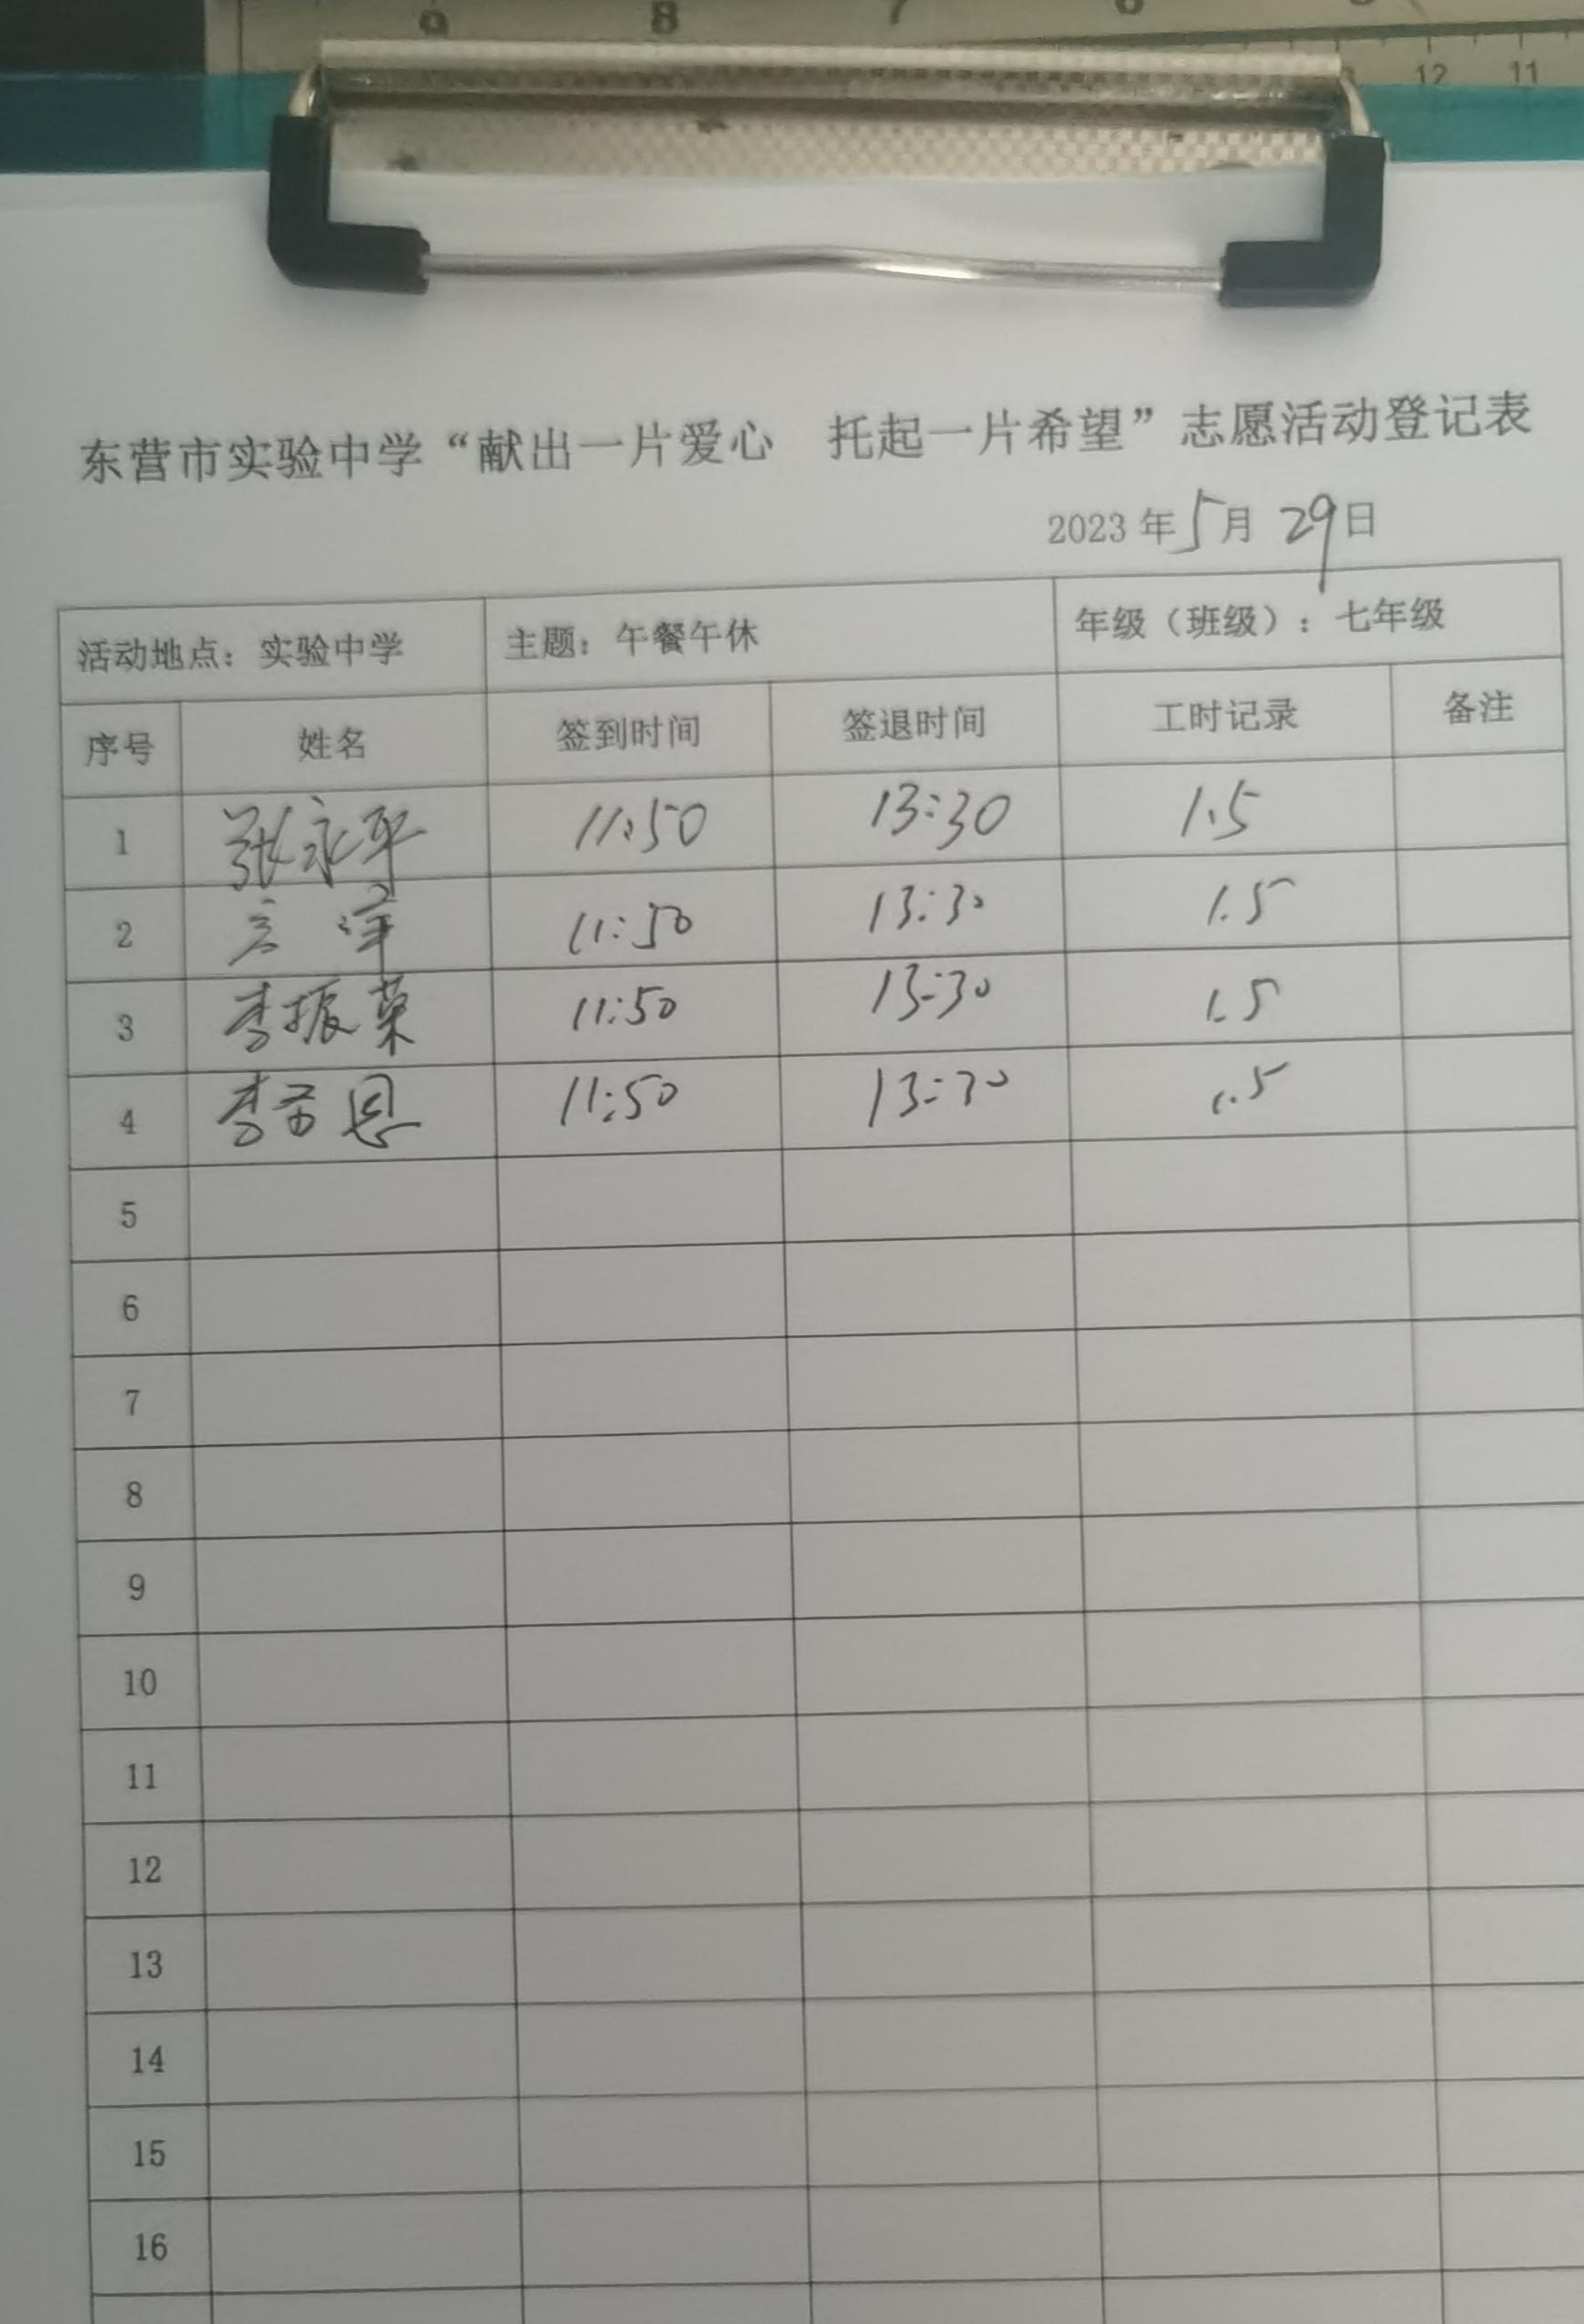 9 8 7 6
12 11
东营市实验中学“献出一片爱心 托起一片希望”志愿活动登记表
2023年5月29日
活动地点：实验中学 主题：午餐午休 年级（班级）：七年级
序号 姓名 签到时间 签退时间 工时记录 备注
1 张永平 11:50 13:30 1.5
2 11:50 13:30 1.5
3 李振荣 11:50 13:30 1.5
4 李 恩 11:50 13:30 1.5
5
6
7
8
9
10
11
12
13
14
15
16